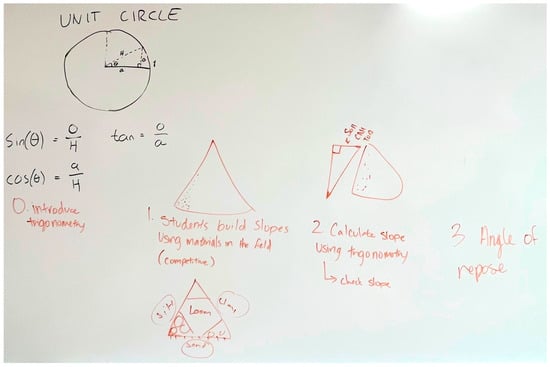 UNIT CIRCLE
H
θ
a
1
sin(θ) = O/H
tan = O/a
cos(θ) = a/H
0. introduce
trigonometry
1. Students build slopes
using materials in the field
(competitive)
2 Calculate slope
using trigonometry
↳ check slope
3 Angle of
repose
Silt
Loam
Clay
Sand